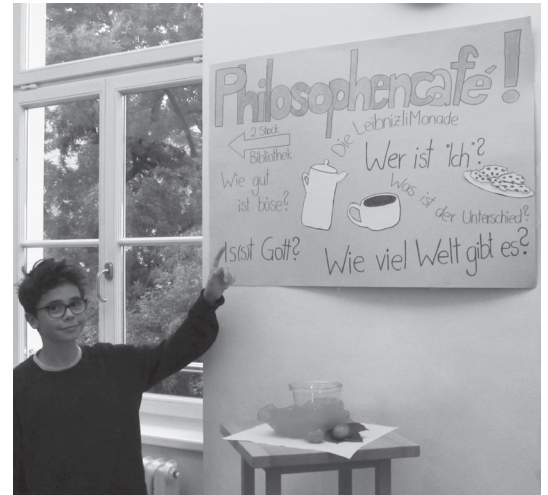 Philosophencafé!
2. Stock
Bibliothek
Die LeibnizliMonade
Wer ist "Ich"?
Wie gut
ist böse?
Was ist der Unterschied?
Is(s)t Gott?
Wie viel Welt gibt es?